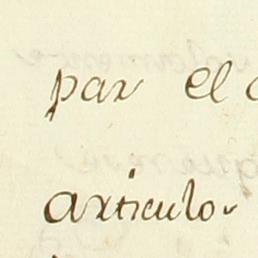 par el
articulo.